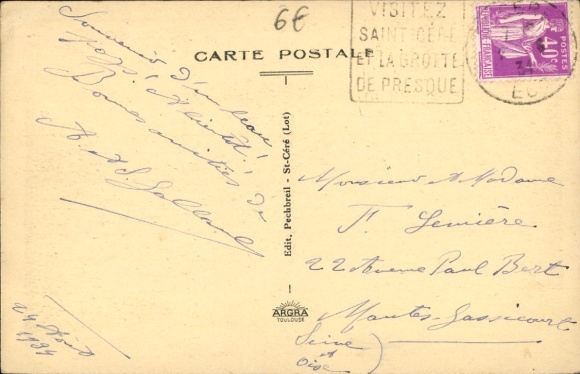 6€
CARTE POSTALE
VISITEZ
SAINT-CÉRÉ
ET LA GROTTE
DE PRESQUE
40c
POSTES
Souvenir d'un beau
voyage! A bientôt!
Bonnes amitiés de
A. et S. Galland
24 Août
1934
Edit. Pechbreil - St-Céré (Lot)
ARGRA
TOULOUSE
Monsieur et Madame
F. Lemière
22 Avenue Paul Bert
Mantes-Gassicourt
Seine
et
Oise